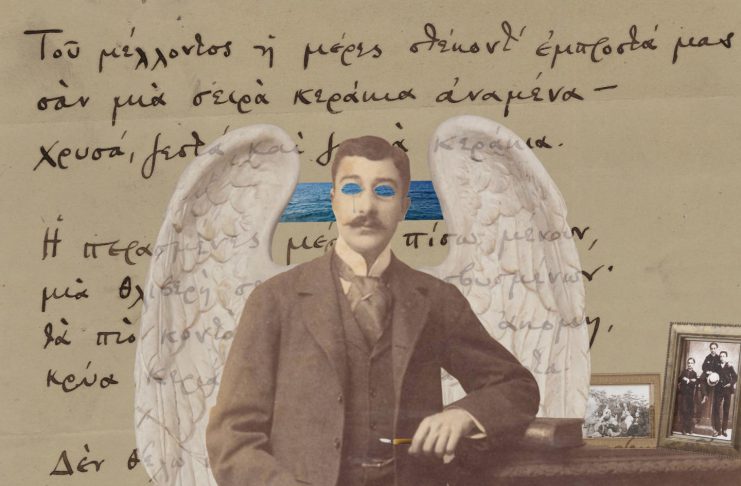 Τοῦ μέλλοντος ἡ μέρες στέκοντ' ἐμπροστά μας
σὰν μιὰ σειρὰ κεράκια ἀναμένα —
χρυσά, ζεστά, καὶ κεράκια.
Ἡ περασμένες πίσω μένουν,
μιὰ θλιβερὴ σβυσμένων·
τὰ πιὸ κοντὰ ἀκόμη,
κρύα κεριά
Δὲν θέλω